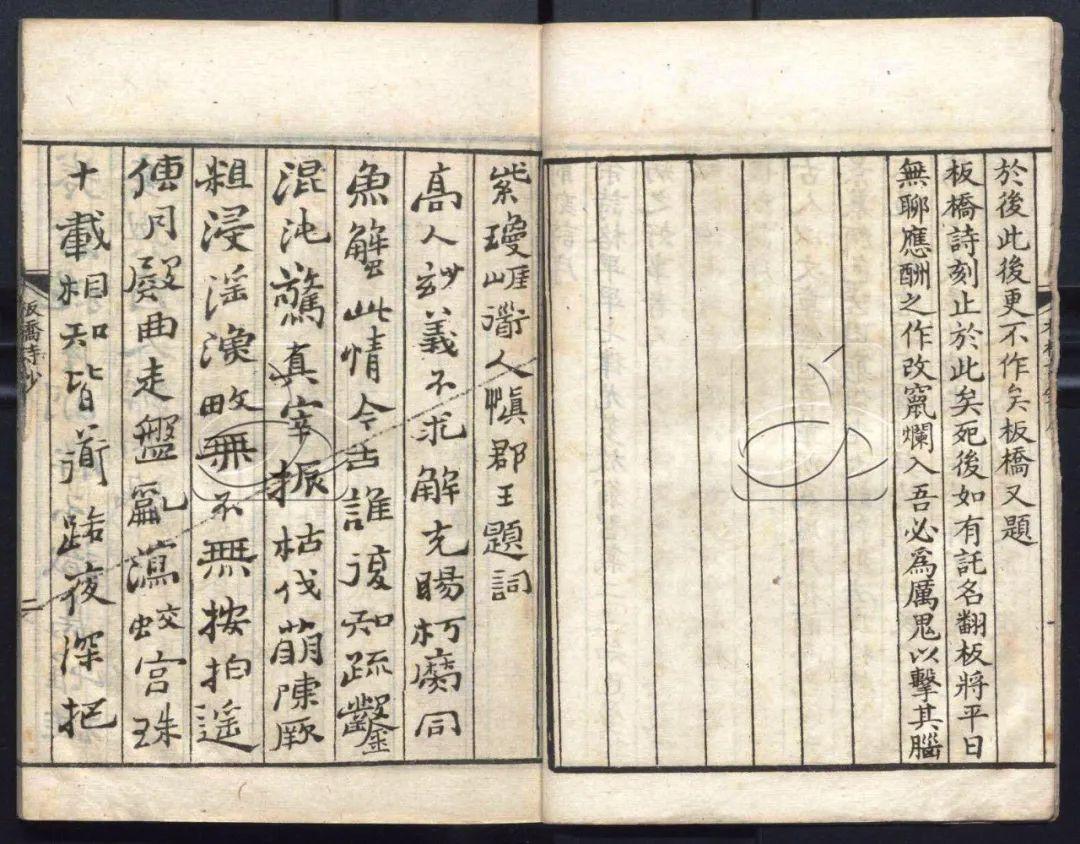 於後此後更不作矣板橋又題
板橋詩刻止於此矣死後如有託名翻板將平日
無聊應酬之作改竄爛入吾必爲厲鬼以擊其腦
紫瓊崖衜人慎郡王題詞
高人妙義不求解充腸朽腐同
魚蟹此情今古誰復知疏鑿
混沌驚真宰振枯伐萌陳厥
粗浸淫漁畋無不無按拍遥
傳月殿曲走盤亂瀉蛟宮珠
十載相知皆衜路夜深把
板橋詩鈔
二